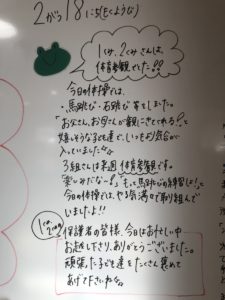 2がつ18にち(もくようび)
1くみ、2くみさんは、
体育参観でした!!
今日の体操では、
・馬跳び・石跳び等をしました。
「お父さん、お母さんが観にきてくれる!」と
嬉しそうな子ども達で、いつもより気合が
入っていましたよ
3組さんは来週体育参観です。
「楽しみだな〜」「もっと馬跳びの練習しよ!」と
今日の体操では、やる気満々で取り組んで
いましたよ!!
1くみ、2くみの
保護者の皆様、今日はお忙しい中
お越し下さり、ありがとうございました。
頑張った子ども達をたくさん褒めて
あげて下さいね